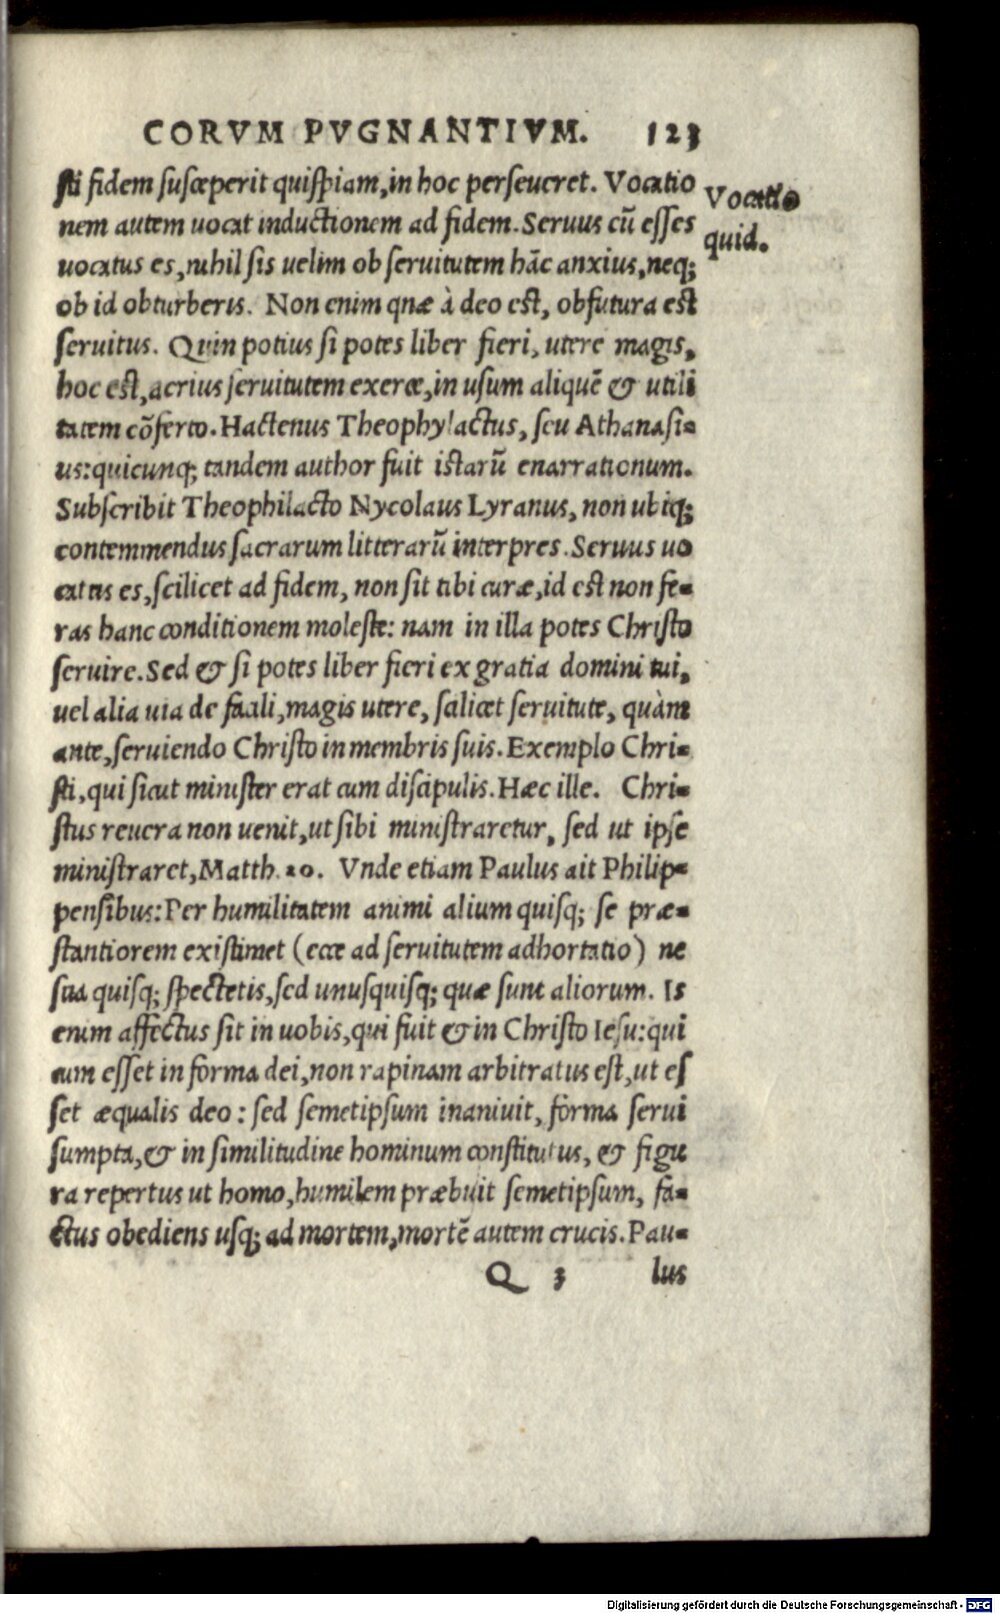 CORVM PVGNANTIVM. 123
sti fidem susceperit quispiam, in hoc perseueret. Vocatio
nem autem uocat inductionem ad fidem. Seruus cũ esses
uocatus es, nihil sis uelim ob seruitutem hãc anxius, neq;
ob id obturberis. Non enim quæ à deo est, obfutura est
seruitus. Quin potius si potes liber fieri, utere magis,
hoc est, acrius seruitutem exerce, in usum aliquẽ & utili
tatem cõferto. Hactenus Theophylactus, seu Athanasi-
us: quicunq; tandem author fuit istarũ enarrationum.
Subscribit Theophilacto Nycolaus Lyranus, non ubiq;
contemmendus sacrarum litterarũ interpres. Seruus uo
catus es, scilicet ad fidem, non sit tibi curæ, id est non fe-
ras hanc conditionem moleste: nam in illa potes Christo
seruire. Sed & si potes liber fieri ex gratia domini tui,
uel alia uia de facili, magis utere, scilicet seruitute, quàm
ante, seruiendo Christo in membris suis. Exemplo Chri-
sti, qui sicut minister erat cum discipulis. Hæc ille. Chri-
stus reuera non uenit, ut sibi ministraretur, sed ut ipse
ministraret, Matth. 20. Vnde etiam Paulus ait Philip-
pensibus: Per humilitatem animi alium quisq; se præ-
stantiorem existimet (ecce ad seruitutem adhortatio) ne
sua quisq; spectetis, sed unusquisq; quæ sunt aliorum. Is
enim affectus sit in uobis, qui fuit & in Christo Iesu: qui
cum esset in forma dei, non rapinam arbitratus est, ut es
set æqualis deo: sed semetipsum inaniuit, forma serui
sumpta, & in similitudine hominum constitutus, & figu
ra repertus ut homo, humilem præbuit semetipsum, fa-
ctus obediens usq; ad mortem, mortẽ autem crucis. Pau-
Q 3 lus
Vocatio
quid.
Digitalisierung gefördert durch die Deutsche Forschungsgemeinschaft - DFG